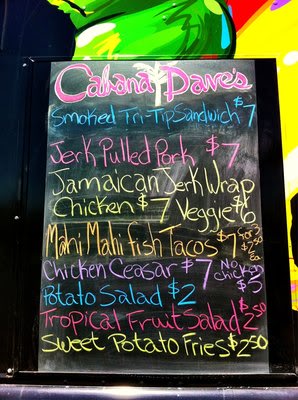 Cabana Dave's
Smoked Tri-Tip Sandwich $7
Jerk Pulled Pork $7
Jamaican Jerk Wrap
Chicken $7 Veggie $6
Mahi Mahi fish Tacos $7 for 3
Chicken Ceasar $7 No chicken $5
Potato Salad $2
Tropical Fruit Salad $2.50
Sweet Potato Fries $2.50